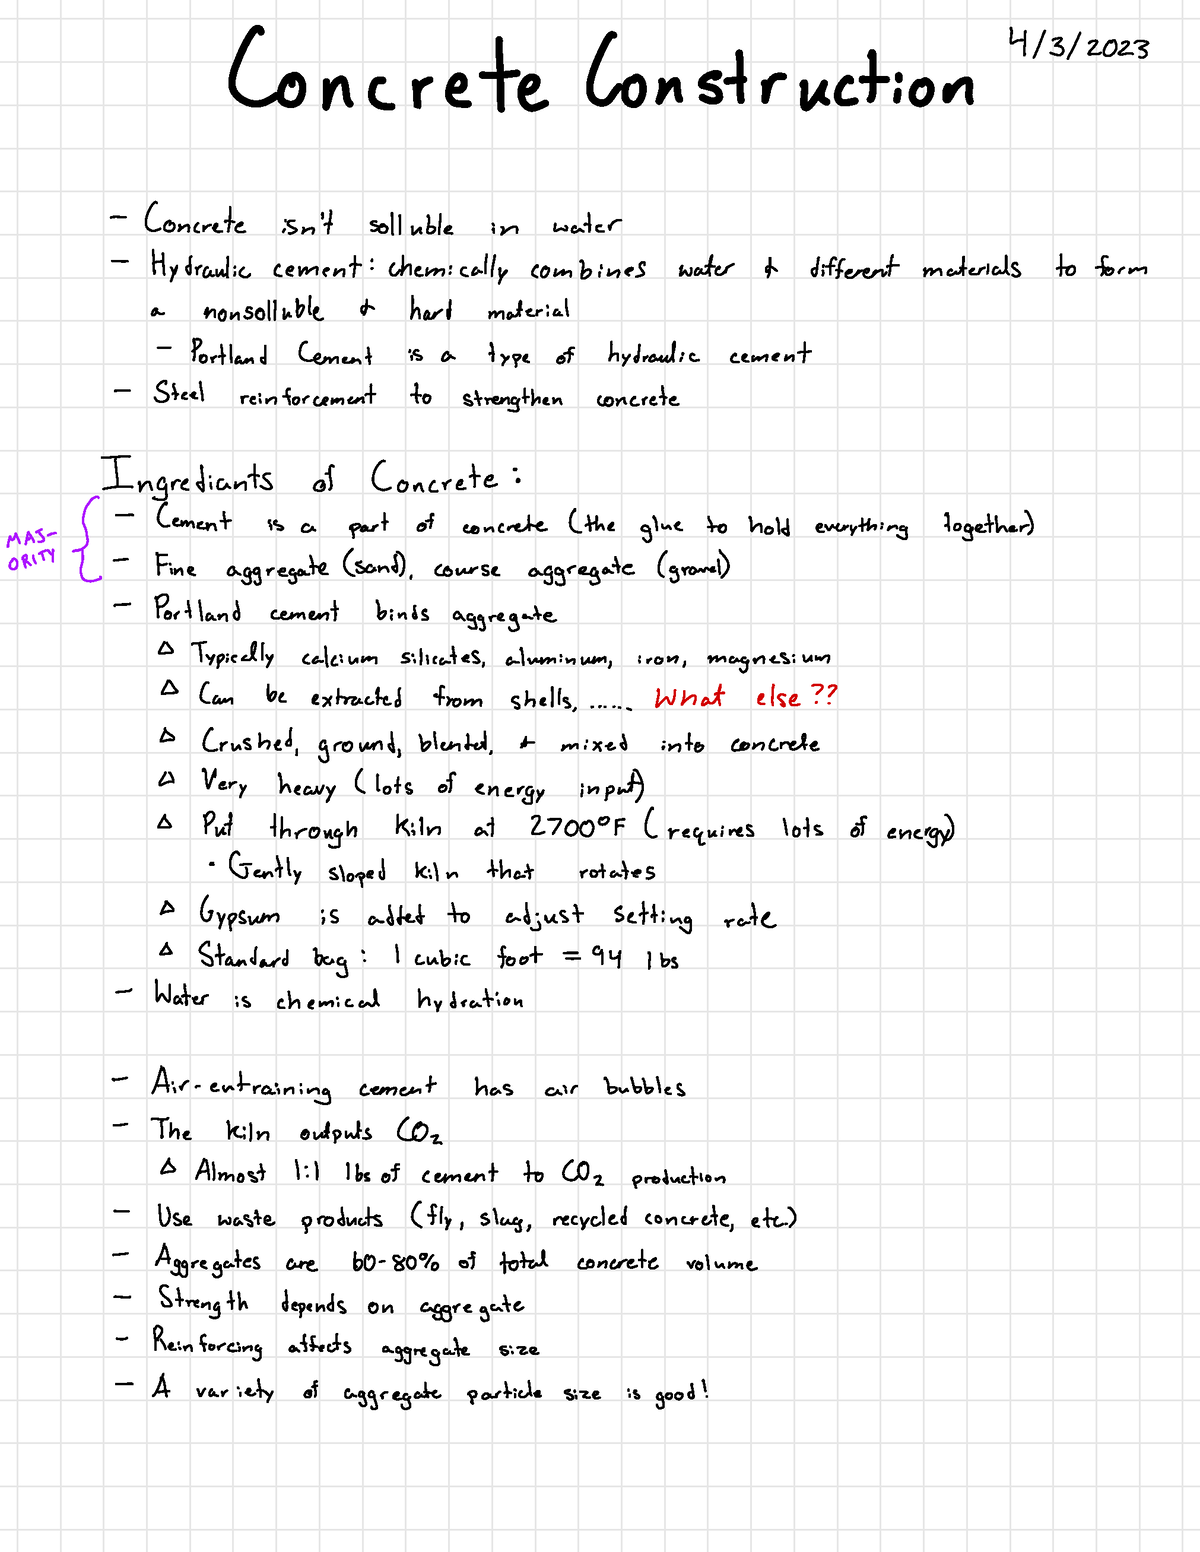 4/3/2023
Concrete Construction
- Concrete isn't solluble in water
- Hydraulic cement: chemically combines water & different materials to form
a nonsolluble & hard material
- Portland Cement is a type of hydraulic cement
- Steel reinforcement to strengthen concrete
Ingrediants of Concrete:
MAJ-
ORITY
- Cement is a part of concrete (the glue to hold everything together)
- Fine aggregate (sand), course aggregate (gravel)
- Portland cement binds aggregate
Δ Typically calcium silicates, aluminum, iron, magnesium
Δ Can be extracted from shells, ...... What else??
Δ Crushed, ground, blended, & mixed into concrete
Δ Very heavy (lots of energy input)
Δ Put through kiln at 2700°F (requires lots of energy)
• Gently sloped kiln that rotates
Δ Gypsum is added to adjust setting rate
Δ Standard bag: 1 cubic foot = 94 lbs
- Water is chemical hydration
- Air-entraining cement has air bubbles
- The kiln outputs CO₂
Δ Almost 1:1 lbs of cement to CO₂ production
- Use waste products (fly, slag, recycled concrete, etc.)
- Aggregates are 60-80% of total concrete volume
- Strength depends on aggregate
- Reinforcing affects aggregate size
- A variety of aggregate particle size is good!